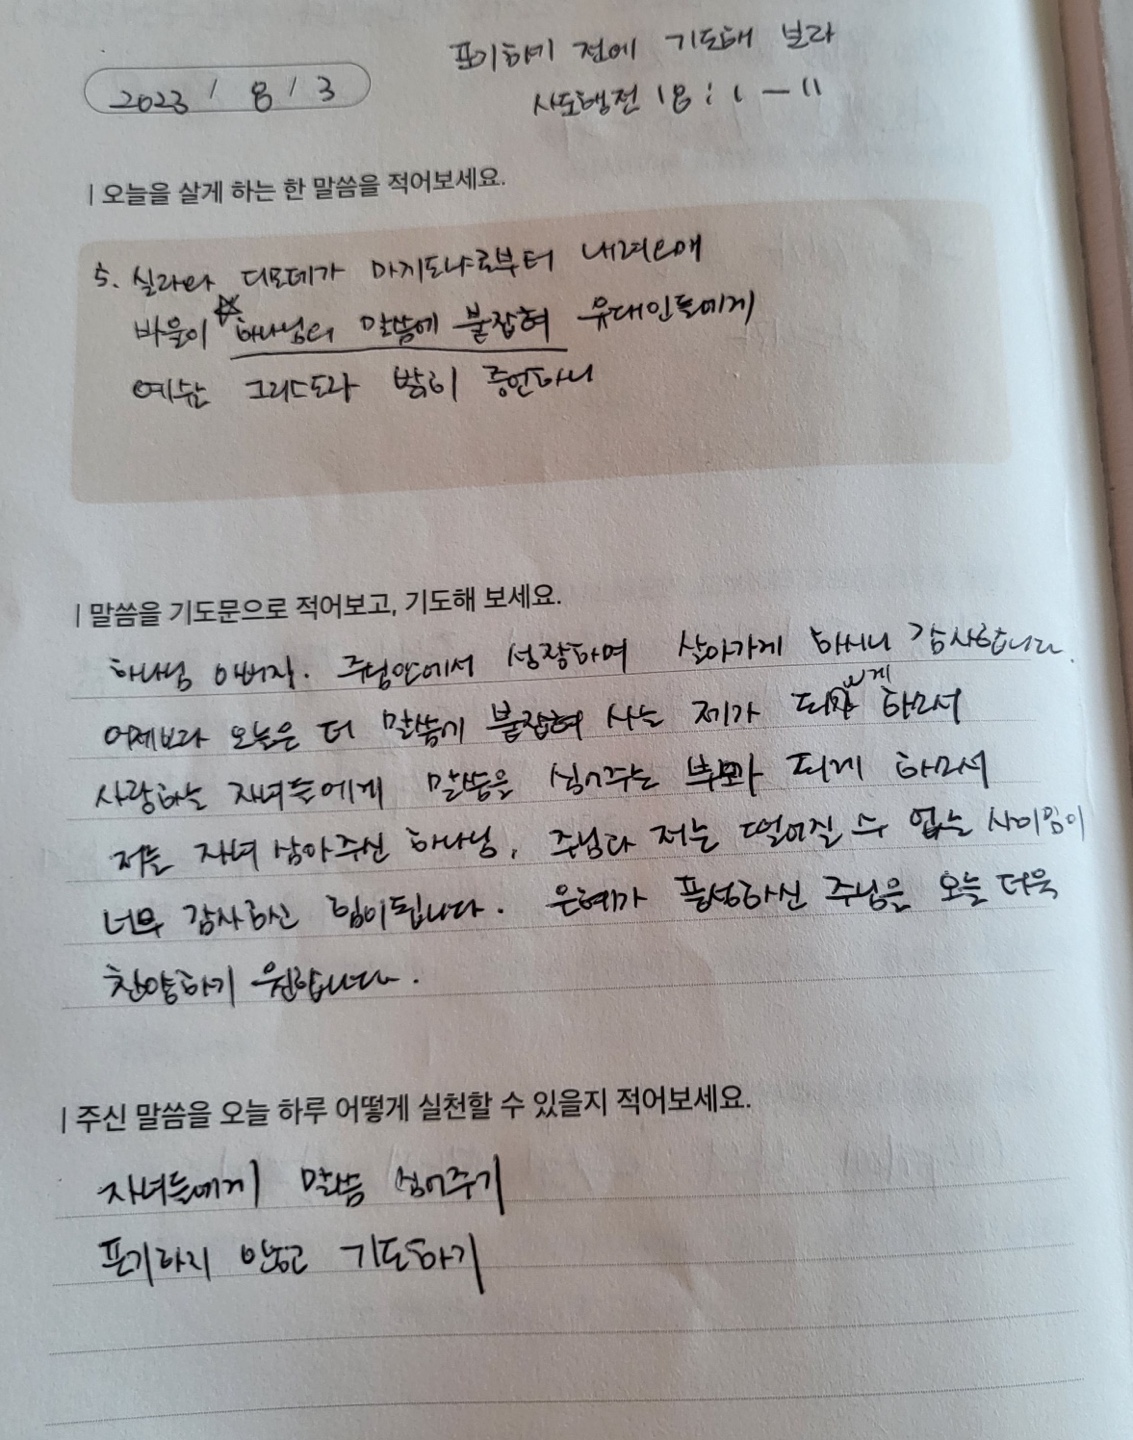 포기하기 전에 기도해 보라
2023 / 8 / 3
사도행전 18:1-11
| 오늘을 살게 하는 한 말씀을 적어보세요.
5. 실라와 디모데가 마게도냐로부터 내려오매
바울이 ☆하나님의 말씀에 붙잡혀 유대인들에게
예수는 그리스도라 밝히 증언하니
| 말씀을 기도문으로 적어보고, 기도해 보세요.
하나님 아버지. 주님안에서 성장하며 살아가게 하시니 감사합니다.
어제보다 오늘은 더 말씀에 붙잡혀 사는 제가 되게 하소서
사랑하는 자녀들에게 말씀을 심어주는 부모가 되게 하소서
저를 자녀 삼아주신 하나님, 주님과 저는 떨어질 수 없는 사이임이
너무 감사하신 힘이됩니다. 은혜가 풍성하신 주님을 오늘 더욱
찬양하기 원합니다.
| 주신 말씀을 오늘 하루 어떻게 실천할 수 있을지 적어보세요.
자녀들에게 말씀 심어주기
포기하지 않고 기도하기